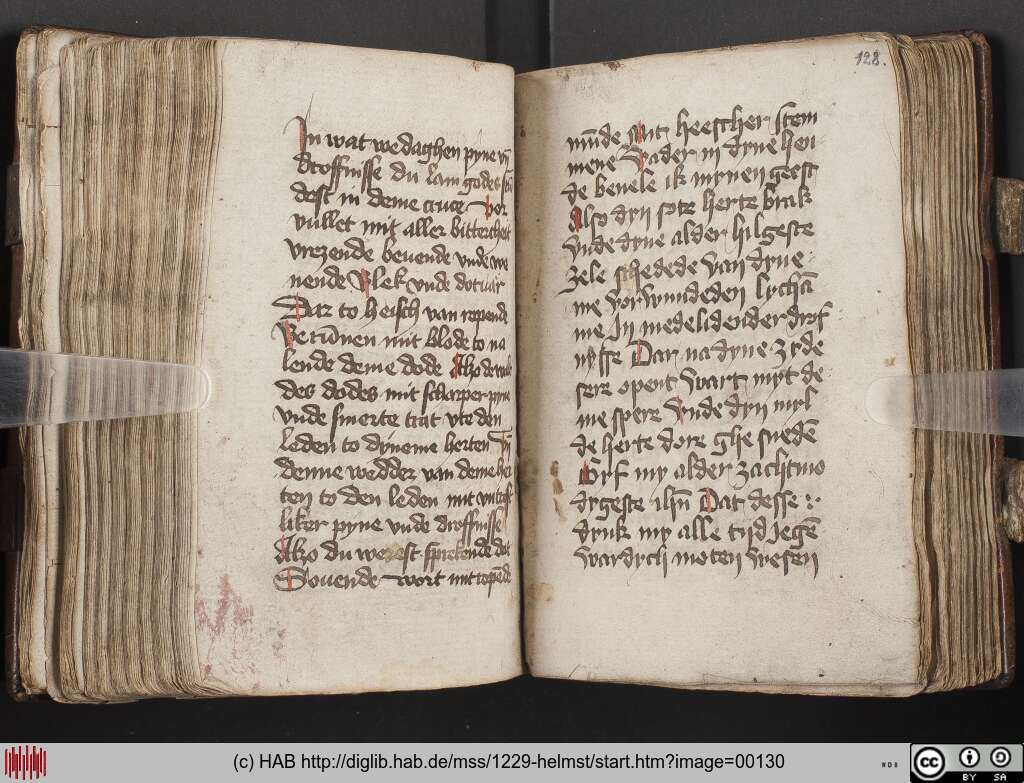 In wat wedaghen pyne vn̄
droffnisse du lam godes
dest in deme cruce Vor
vullet mit aller bittercheit
vrezende beuende vnde we
nende Vlek vnde dotuar
Dar to heisch van ropende
Vnde mit blode to na
lende deme dode Alzo de
des dodes mit scharper pyne
vnde smerte trat vte den
leden to dyneme herten Vn̄
denne wedder van deme her
ten to den leden mit
liker pyne vnde droffnisse
Alzo du werest sprekende dat
Douende wort mit ropēde
128.
mūde Mit heescher stem
mene Vader in dyne hen
de beuele ik mynen geest
Also dyn sote herte brak
Vnde dyne alder hilgeste
zele schedede van dyne
me vorwundeden lychā
me In medelidender drof
nysse Dar na dyne zyde
sere opent wart myt de
me spere Vnde dyn myl
de herte dore ghe sneden
Gyf my alder zachtmo
dygeste ihū Dat desse
drunk my alle tijd jegē
wardych moten wesen
(c) HAB http://diglib.hab.de/mss/1229-helmst/start.htm?image=00130
WDB
cc
BY SA